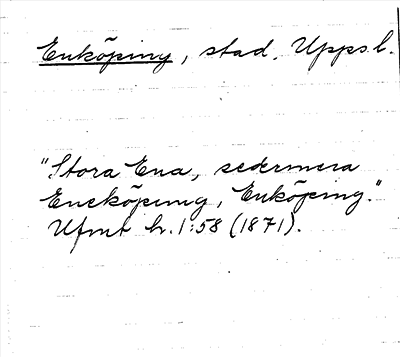 Enköping, stad, Upps. l.
"Stora Ena, sedermera
Eneköpung, Enköping."
Ufmt h. 1:58 (1871).